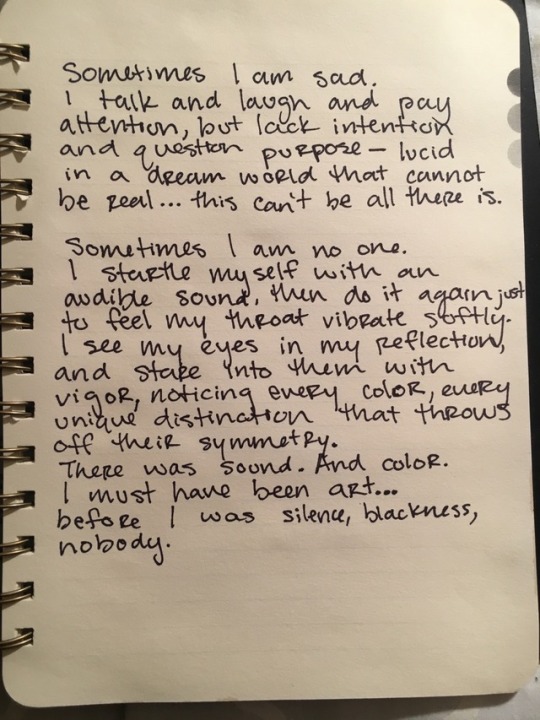 Sometimes I am sad.
I talk and laugh and pay
attention, but lack intention
and question purpose — lucid
in a dream world that cannot
be real... this can't be all there is.
Sometimes I am no one.
I startle myself with an
audible sound, then do it again just
to feel my throat vibrate softly.
I see my eyes in my reflection,
and stare into them with
vigor, noticing every color, every
unique distinction that throws
off their symmetry.
There was sound. And color.
I must have been art...
before I was silence, blackness,
nobody.